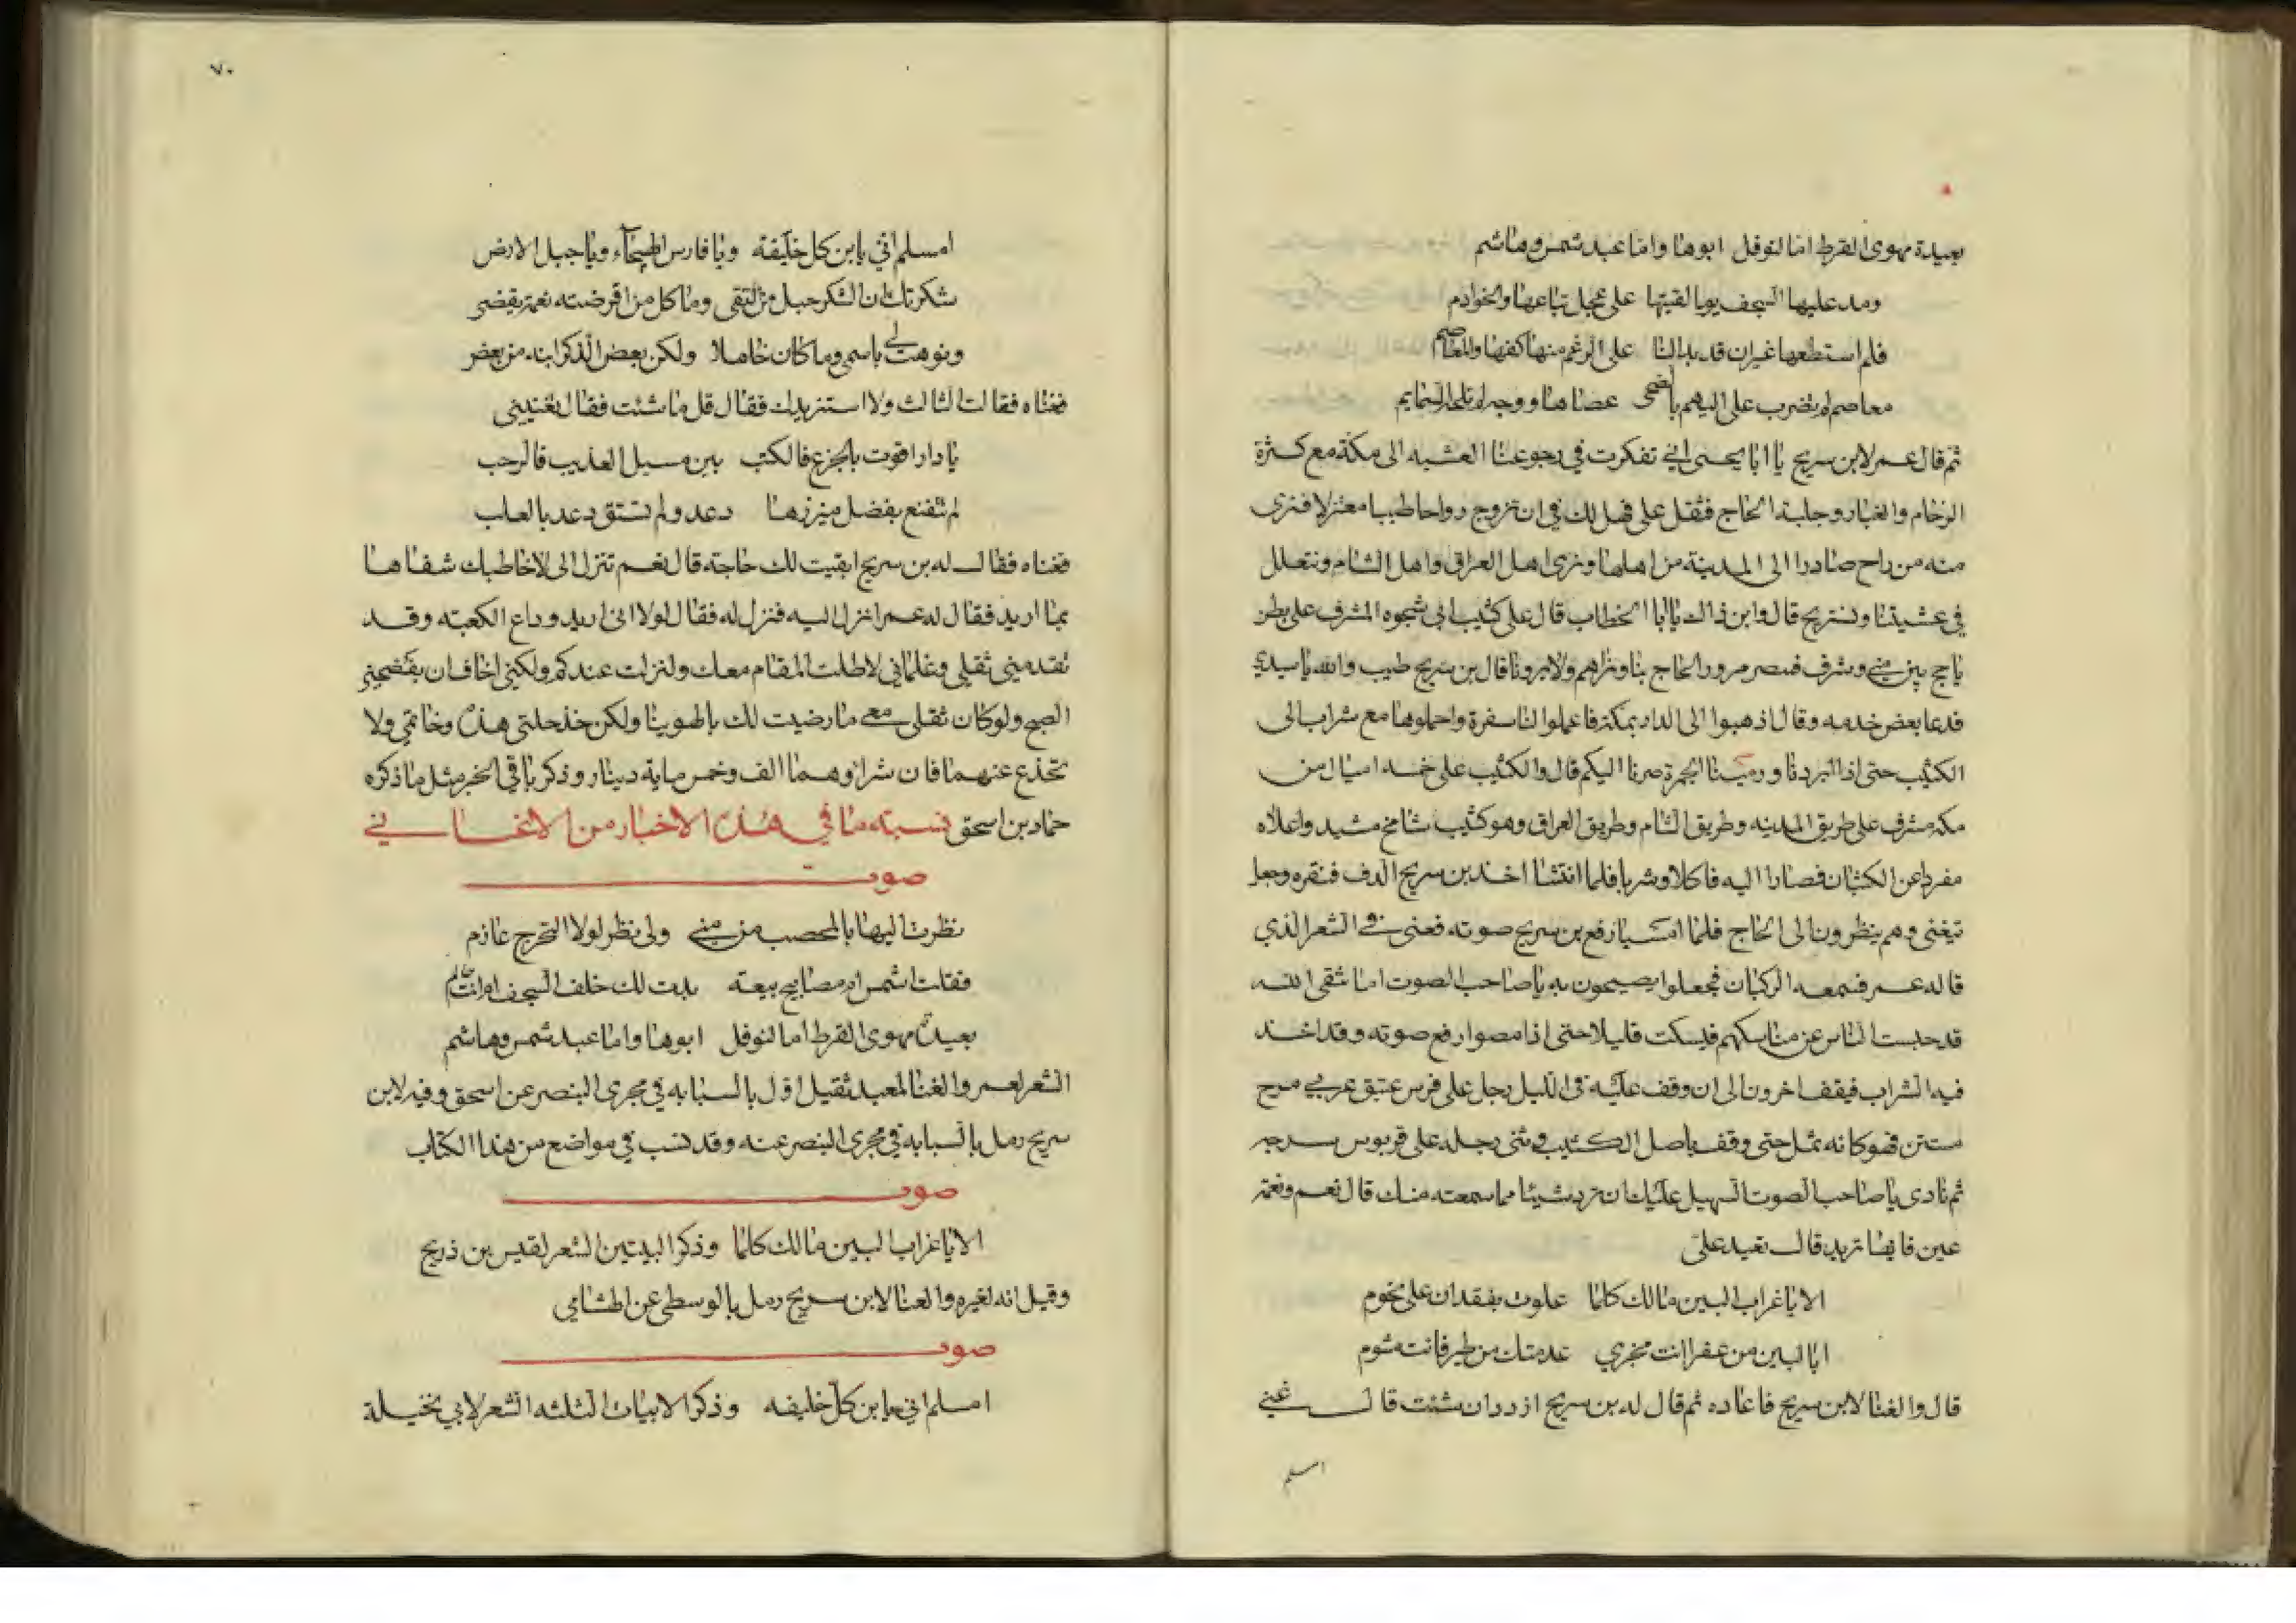 بعيدة مهوى القرط اما لنوفل ابوها واما عبد شمس وهاشم
ومد عليها السجف يوم لقيتها على عجل تباعها والخوادم
فلم استطعها غير ان قد بدا لنا على الرغم منها كفها والمعاصم
معاصم لم تضرب على البهم بالضحى عصاها ووجه لم تلحه السمايم
ثم قال عمر لابن سريج يا ابا يحيى اني تفكرت في رجوعنا العشيه الى مكة مع كثرة
الزحام والغبار وجلبة الحاج فثقل علي فهل لك في ان نروح رواحا طيبا معتزلا فنرى
منه من راح صادرا الى المدينة من اهلها ونرى اهل العراق واهل الشام ونتعلل
في عشيتنا ونستريح قال واين ذاك يا ابا الخطاب قال على كثيب ابي شجوه المشرف على بطن
ياجج بين منى وسرف فنبصر مرور الحاج بنا ونراهم ولا يرونا قال بن سريج طيب والله يا سيدي
فدعا بعض خدمه وقال اذهبوا الى الدار بمكة فاعملوا لنا سفرة واحملوها مع شراب الى
الكثيب حتى اذا ابردنا ورمينا الجمرة صرنا اليكم قال والكثيب على خمسه اميال من
مكه مشرف على طريق المدينه وطريق الشام وطريق العراق وهو كثيب شامخ مشيد واعلاه
مفرد عن الكثبان فصارا اليه فاكلا وشربا فلما انتشا اخذ بن سريج الدف فنقره وجعل
يتغنى وهم ينظرون الى الحاج فلما امسيا رفع بن سريج صوته فغنى في الشعر الذي
قاله عمر فسمعه الركبان فجعلوا يصيحون به يا صاحب الصوت اما تتقى الله
قد حبست الناس عن مناسكهم فيسكت قليلا حتى اذا مضوا رفع صوته وقد اخذ
فيه الشراب فيقف اخرون الى ان وقف عليه في الليل رجل على فرس عتيق عربي مرح
مستن فهو كانه ثمل حتى وقف باصل الكثيب وثنى رجله على قربوس سرجه
ثم نادى يا صاحب الصوت ايسهل عليك ان ترد شيئا مما سمعته منك قال نعم ونعمة
عين فايها تريد قال تعيد علي
الا يا غراب البين مالك كلما علوت بفقدان علي تحوم
ابا لبين من عفرا انت مخبري عدمتك من طير فانت مشوم
قال والغنا لابن سريج فاعاده ثم قال له بن سريج ازدد ان شئت قال غنني
امسلم
٧٠
امسلم اني يابن كل خليفة ويا فارس الهيجآء ويا جبل الارض
شكرتك ان الشكر حبل من التقى وما كل من اقرضته نعمة يقضي
ونوهت لي باسمي وما كان خاملا ولكن بعض الذكر انبه من بعض
فغناه فقال الثالث ولا استزيدك فقال قل ما شئت فقال تغنيني
يا دار اقوت بالجزع فالكتب بين مسيل العذيب فالرحب
لم تتقنع بفضل ميزرها دعد ولم تستق دعد بالعلب
فغناه فقال له بن سريج ابقيت لك حاجة قال نعم تنزل الي لاخاطبك شفاها
بما اريد فقال له عمر انزل اليه فنزل له فقال لولا انى اريد وداع الكعبته وقد
تقدمني ثقلي وغلماني لاطلت المقام معك ولنزلت عندكم ولكني اخاف ان يفضحني
الصبح ولو كان ثقلي معي ما رضيت لك بالهوينا ولكن خذ حلتي هذه وخاتمي ولا
تخدع عنهما فان شراؤهما الف وخمس ماية دينار وذكر باقي الخبر مثل ما ذكره
حماد بن اسحق نسبته ما في هذه الاخبار من الاغاني
صوت
نظرت اليها بالمحصب من منى ولي نظر لولا التحرج عازم
فقلت اشمس ام مصابيح بيعة بدت لك خلف السجف ام انت حالم
بعيدة مهوى القرط اما لنوفل ابوها واما عبد شمس وهاشم
الشعر لعمر والغنا لمعبد ثقيل اول بالسبابه في مجرى البنصر عن اسحق وفيه لابن
سريج رمل بالسبابه في مجرى البنصر عنه وقد نسب في مواضع من هذا الكتاب
صوت
الا يا غراب البين مالك كلما وذكر البيتين الشعر لقيس بن ذريح
وقيل انه لغيره والغنا لابن سريج رمل بالوسطى عن الهشامي
صوت
امسلم اني يابن كل خليفه وذكر الابيات الثلثه الشعر لابي نخيلة